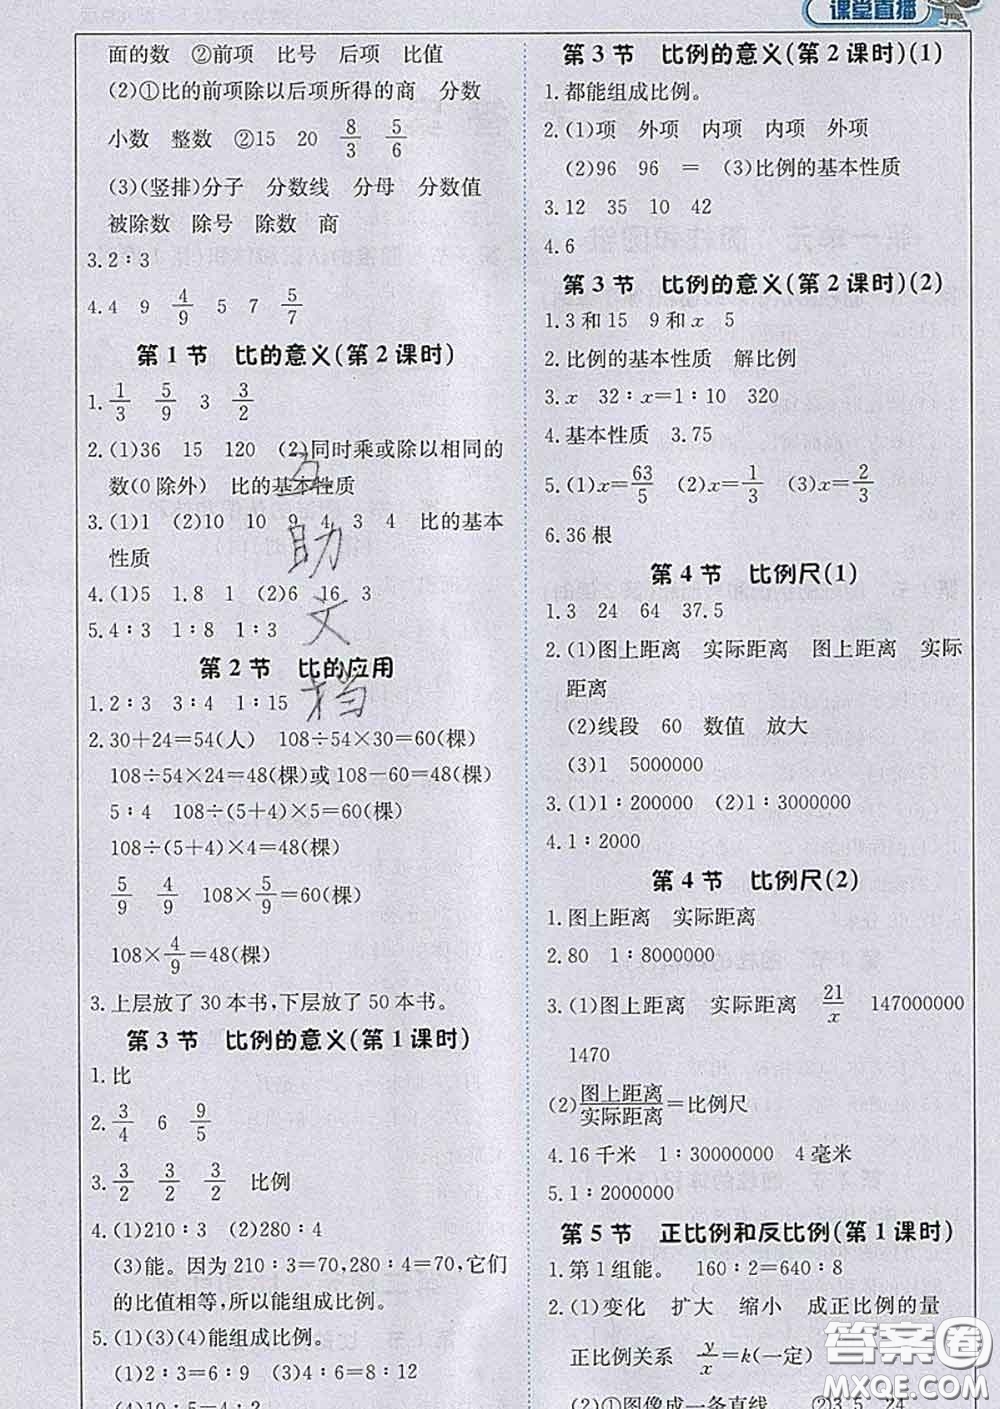 课堂直播
面的数 ②前项 比号 后项 比值
(2)①比的前项除以后项所得的商 分数
小数 整数 ②15 20 8/3 5/6
(3)(竖排)分子 分数线 分母 分数值
被除数 除号 除数 商
3.2∶3
4.4 9 4/9 5 7 5/7
第1节 比的意义(第2课时)
1.1/3 5/9 3 3/2
2.(1)36 15 120 (2)同时乘或除以相同的
数(0除外) 比的基本性质
3.(1)1 (2)10 10 9 4 3 4 比的基本
性质
4.(1)5 1.8 1 (2)6 16 3
5.4∶3 1∶8 1∶3
第2节 比的应用
1.2∶3 3∶4 1∶15
2.30+24=54(人) 108÷54×30=60(棵)
108÷54×24=48(棵)或108-60=48(棵)
5∶4 108÷(5+4)×5=60(棵)
108÷(5+4)×4=48(棵)
5/9 4/9 108×5/9=60(棵)
108×4/9=48(棵)
3.上层放了30本书,下层放了50本书。
第3节 比例的意义(第1课时)
1.比
2.3/4 6 9/5
3.3/2 3/2 3/2 比例
4.(1)210∶3 (2)280∶4
(3)能。因为210∶3=70,280∶4=70,它们
的比值相等,所以能组成比例。
5.(1)(3)(4)能组成比例。
(1)12∶15=8∶10 (3)4∶6=8∶12
第3节 比例的意义(第2课时)(1)
1.都能组成比例。
2.(1)项 外项 内项 内项 外项
(2)96 96 = (3)比例的基本性质
3.12 35 10 42
4.6
第3节 比例的意义(第2课时)(2)
1.3和15 9和x 5
2.比例的基本性质 解比例
3.x 32∶x=1∶10 320
4.基本性质 3.75
5.(1)x=63/5 (2)x=1/3 (3)x=2/3
6.36根
第4节 比例尺(1)
1.3 24 64 37.5
2.(1)图上距离 实际距离 图上距离 实际
距离
(2)线段 60 数值 放大
(3)1 5000000
3.(1)1∶200000 (2)1∶3000000
4.1∶2000
第4节 比例尺(2)
1.图上距离 实际距离
2.80 1∶8000000
3.(1)图上距离 实际距离 21/x 147000000
1470
(2)图上距离/实际距离=比例尺
4.16千米 1∶30000000 4毫米
5.1∶2000000
第5节 正比例和反比例(第1课时)
1.第1组能。 160∶2=640∶8
2.(1)变化 扩大 缩小 成正比例的量
正比例关系 y/x=k(一定)
(2)①图像成一条直线 ②3.5 24
互助文档
答案圈
MXQE.COM